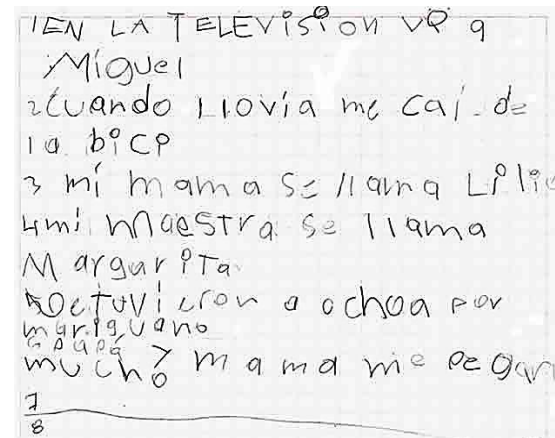 1 EN LA TELEVisioN vi a
Miguel
2 Cuando LLovia me cai de
la bici
3 mi mama se llama Lili
4 mi maestra se llama
Margarita
5 Detuvieron a ochoa por
mariguano
6 papa
mucho y mama me pegan
7
8